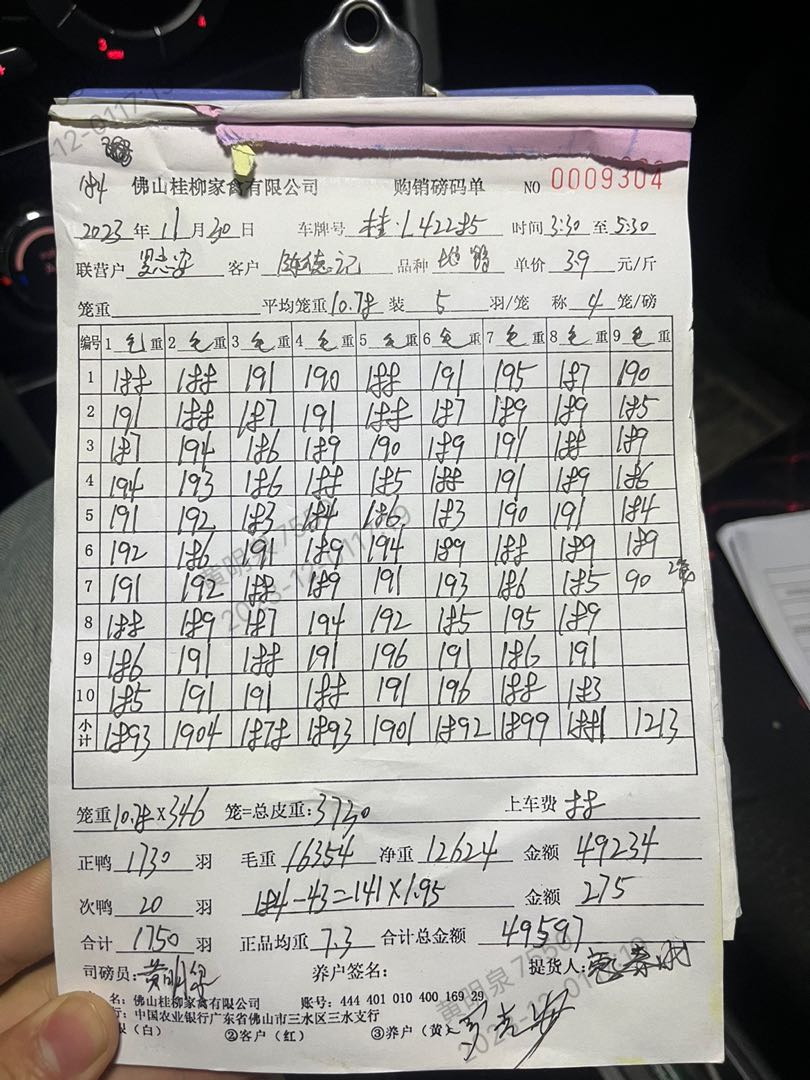 184 佛山桂柳家禽有限公司 购销磅码单 NO 0009304
2023 年 11 月 30 日 车牌号 桂·L42285 时间 3:30 至 5:30
联营户 客户 陈德记 品种 单价 3.9 元/斤
笼重 平均笼重 10.78 装 5 羽/笼 称 4 笼/磅
编号 1 毛 重 2 毛 重 3 毛 重 4 毛 重 5 毛 重 6 毛 重 7 毛 重 8 毛 重 9 毛 重
1 188 188 191 190 188 191 195 187 190
2 191 188 187 191 188 187 189 189 185
3 187 194 186 189 190 189 191 188 189
4 194 193 186 188 185 188 191 189 186
5 191 192 183 184 186 183 190 191 184
6 192 186 191 189 194 189 188 189 189
7 191 192 188 189 191 193 186 185 90 2笼
8 188 189 187 194 192 185 195 189
9 186 191 188 191 196 191 186 191
10 185 191 191 188 191 196 188 183
小计 1893 1904 1878 1893 1901 1892 1899 1881 1213
笼重 10.78×346 笼=总皮重: 3730 上车费 88
正鸭 1730 羽 毛重 16354 净重 12624 金额 49234
次鸭 20 羽 184-43=141×1.95 金额 275
合计 1750 羽 正品均重 7.3 合计总金额 49597
司磅员: 黄明泉 养户签名: 提货人:
名: 佛山桂柳家禽有限公司 账号: 444 401 010 400 169 29
行: 中国农业银行广东省佛山市三水区三水支行
(白) ②客户 (红) ③养户 (黄)
黄明泉 7559
2023-12-01 17:19